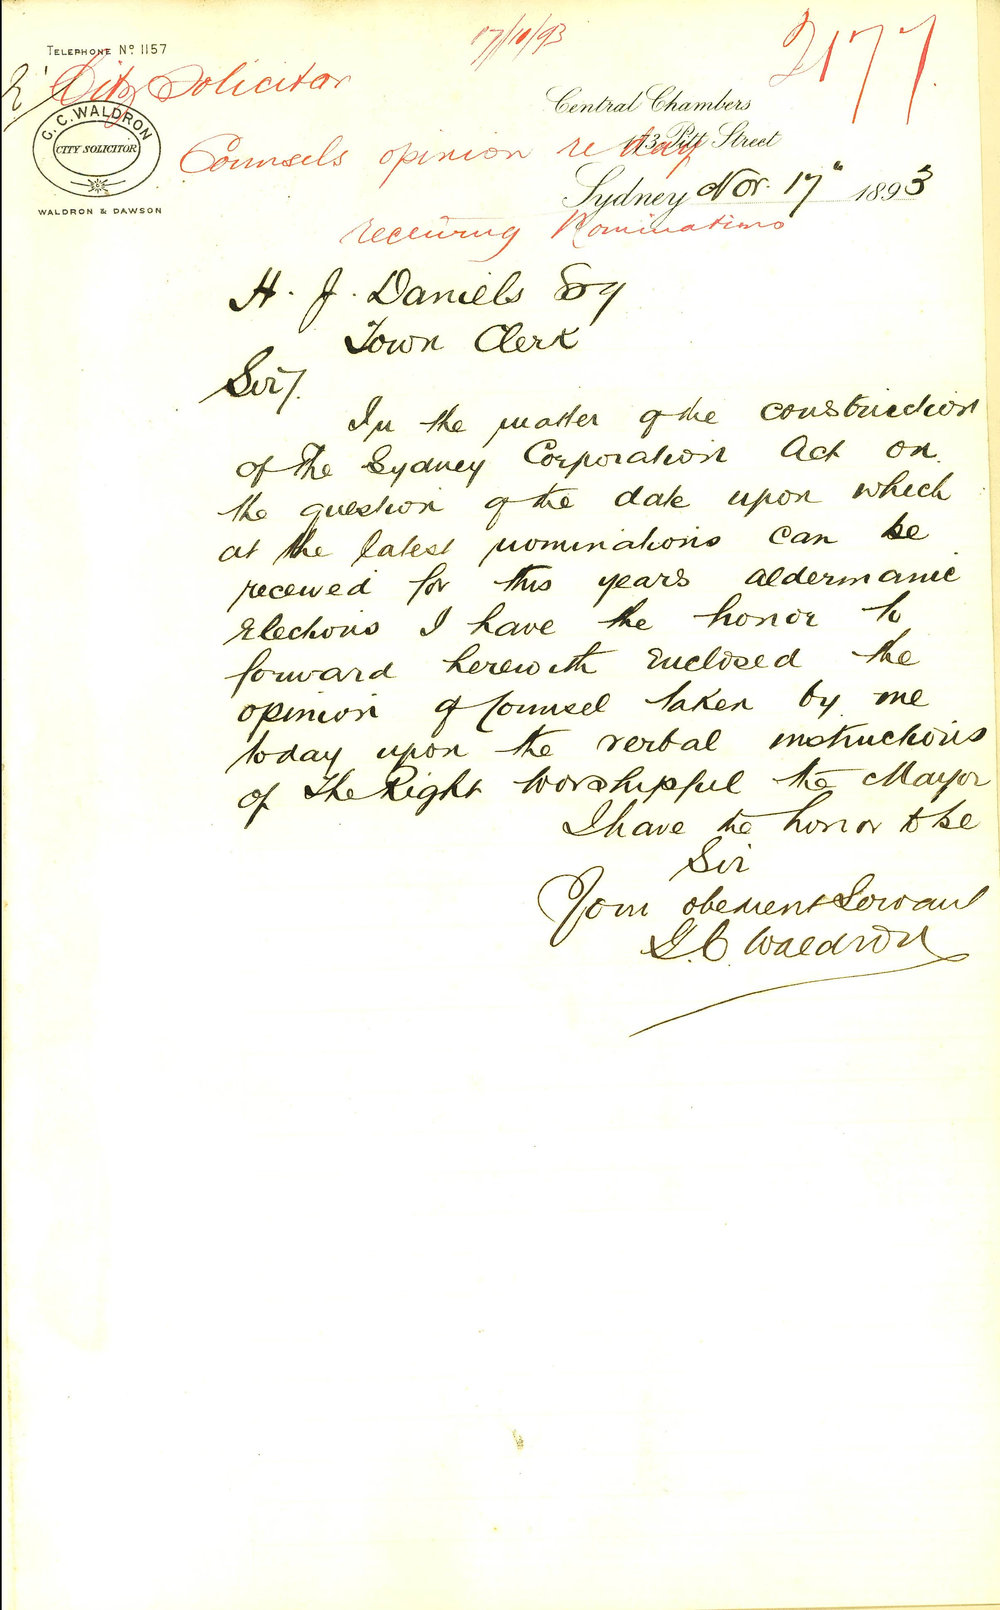 TELEPHONE Nº 1157
17/10/93
2177
City Solicitor
G. C. WALDRON
CITY SOLICITOR
WALDRON & DAWSON
Central Chambers
Pitt Street
Counsels opinion re
Sydney Nov. 17" 1893
receiving Nominations
H. J. Daniels Esq
Town Clerk
Sir/.
In the matter of the construction
of The Sydney Corporation Act on
the question of the date upon which
at the latest nominations can be
received for this years aldermanic
Elections I have the honor to
forward herewith Enclosed the
opinion of Counsel taken by me
today upon the verbal instructions
of The Right Worshipful the Mayor
I have the honor to be
Sir
Your obedient Servant
G. C. Waldron